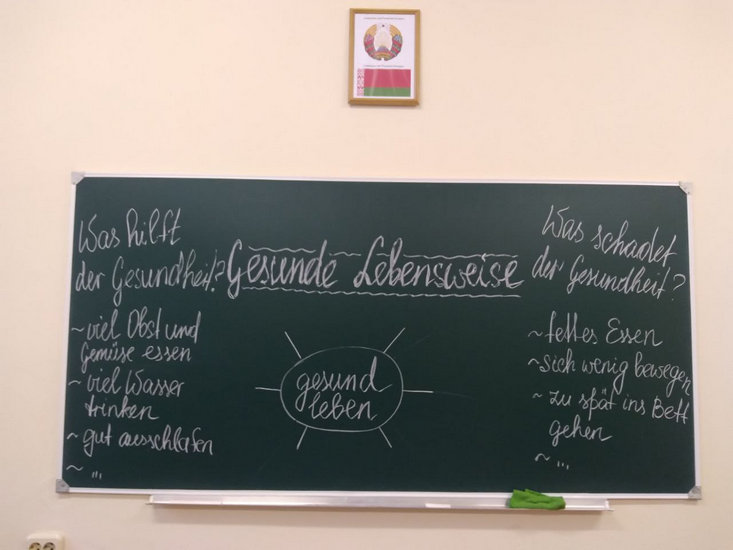 Was hilft
der Gesundheit?
~ viel Obst und
Gemüse essen
~ viel Wasser
trinken
~ gut ausschlafen
~ ...
Gesunde Lebensweise
gesund
leben
Was schadet
der Gesundheit?
~ fettes Essen
~ sich wenig bewegen
~ zu spät ins Bett
gehen
~ ...